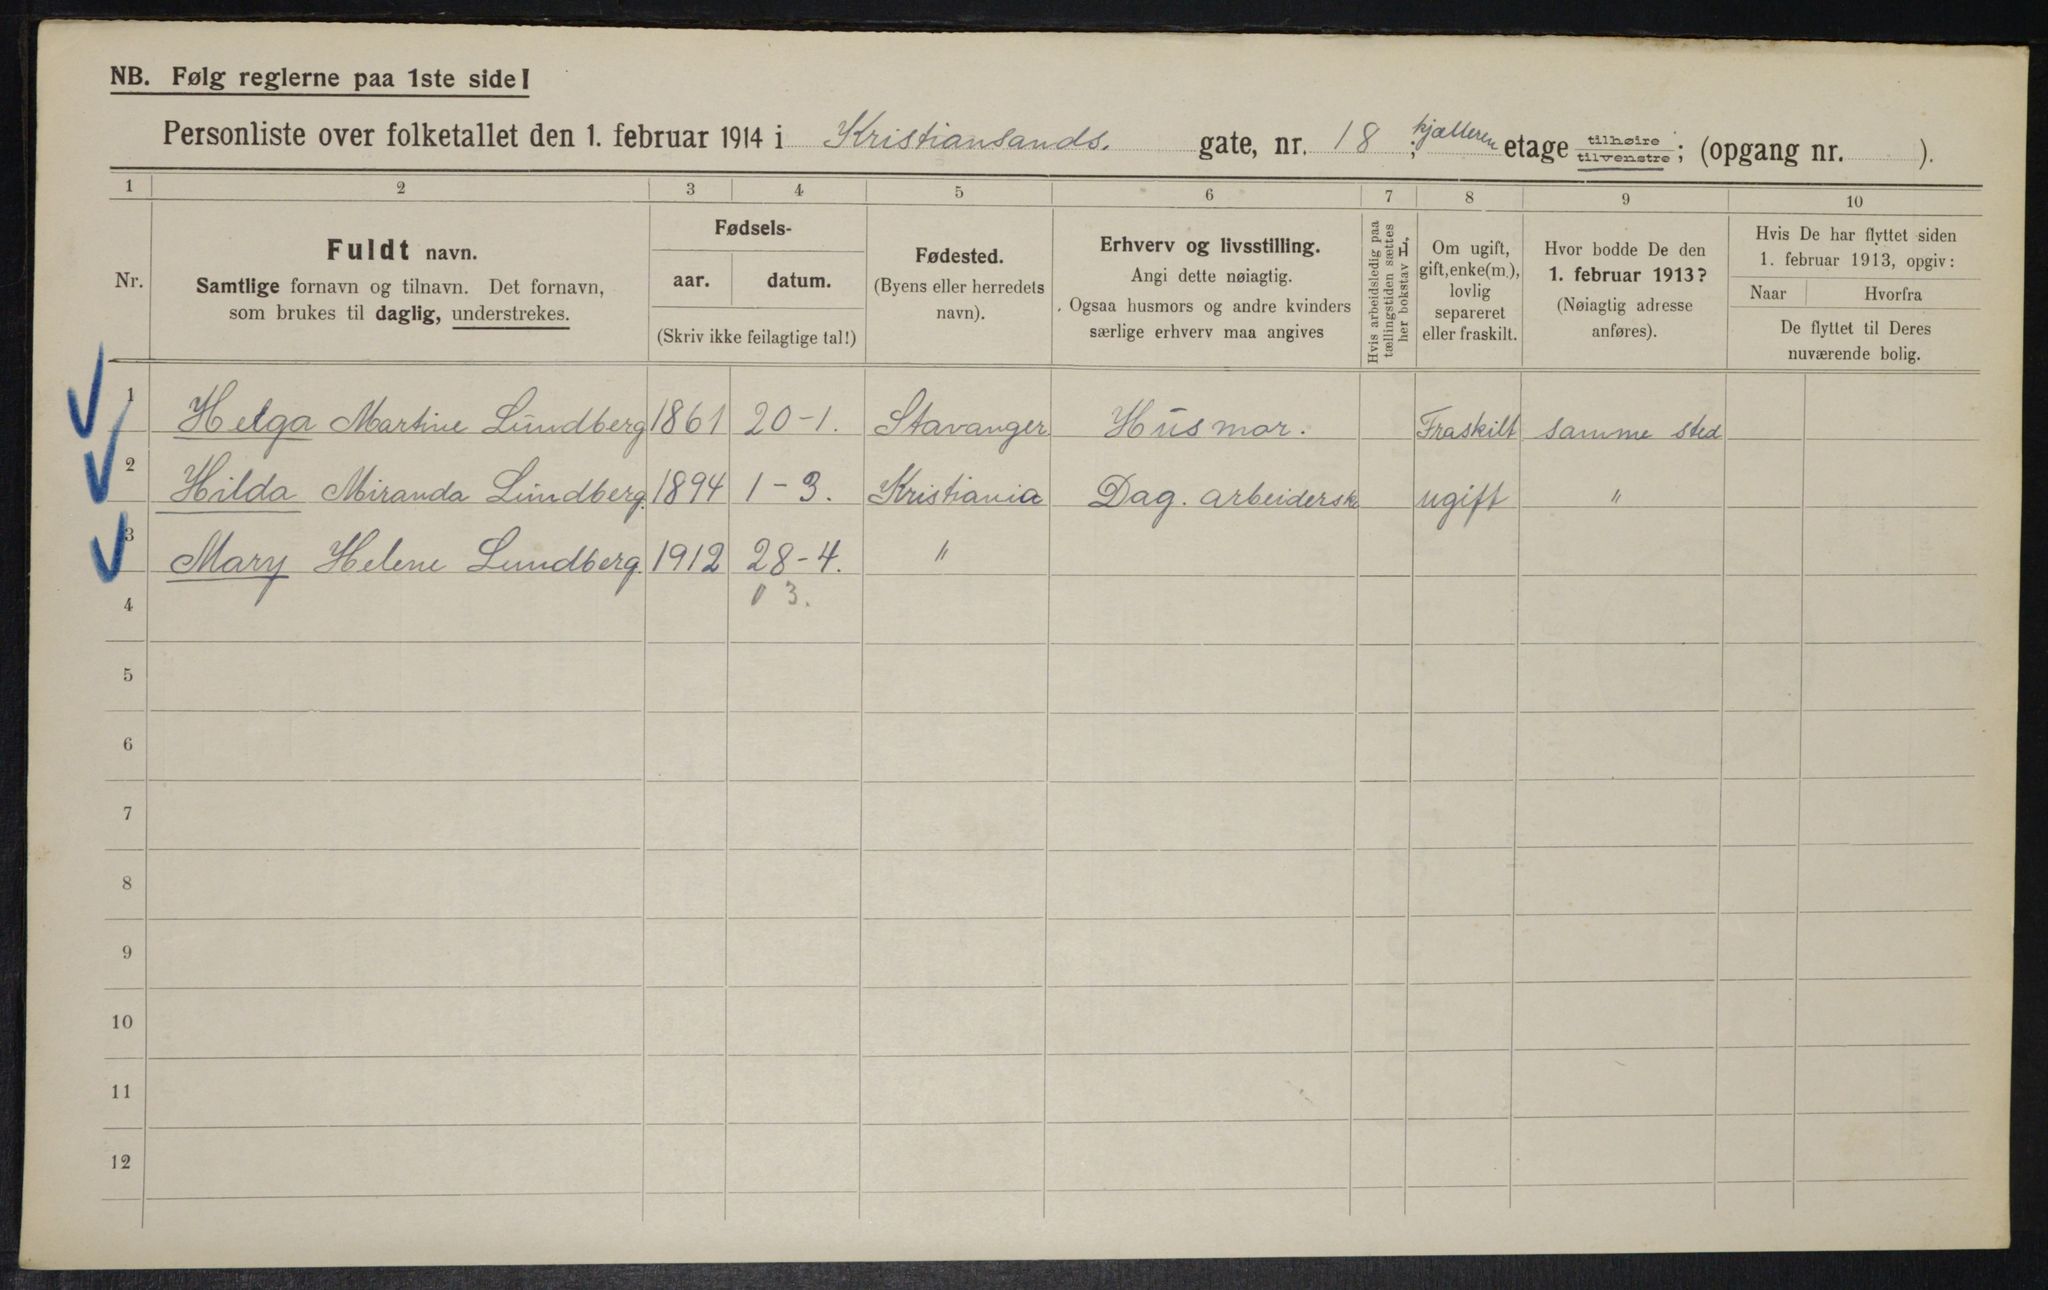 NB. Følg reglerne paa 1ste side!
Personliste over folketallet den 1. februar 1914 i Kristiansands. gate, nr. 18; kjælleren etage tilhøire tilvenstre; (opgang nr. ).
1 2 3 4 5 6 7 8 9 10
Nr.
Fuldt navn.
Samtlige fornavn og tilnavn. Det fornavn,
som brukes til daglig, understrekes.
Fødsels-
aar. datum.
(Skriv ikke feilagtige tal!)
Fødested.
(Byens eller herredets
navn).
Erhverv og livsstilling.
Angi dette nøiagtig.
Ogsaa husmors og andre kvinders
særlige erhverv maa angives
Hvis arbeidsledig paa
tællingstiden sættes
her bokstav L,
Om ugift,
gift, enke(m.),
lovlig
separeret
eller fraskilt.
Hvor bodde De den
1. februar 1913?
(Nøiagtig adresse
anføres).
Hvis De har flyttet siden
1. februar 1913, opgiv:
Naar Hvorfra
De flyttet til Deres
nuværende bolig.
1 Helga Martine Lundberg 1861 20-1. Stavanger Husmor. Fraskilt samme sted
2 Hilda Miranda Lundberg. 1894 1-3. Kristiania Dag. arbeiderske ugift "
3 Mary Helene Lundberg. 1912 28-4. "
4 0 3.
5
6
7
8
9
10
11
12